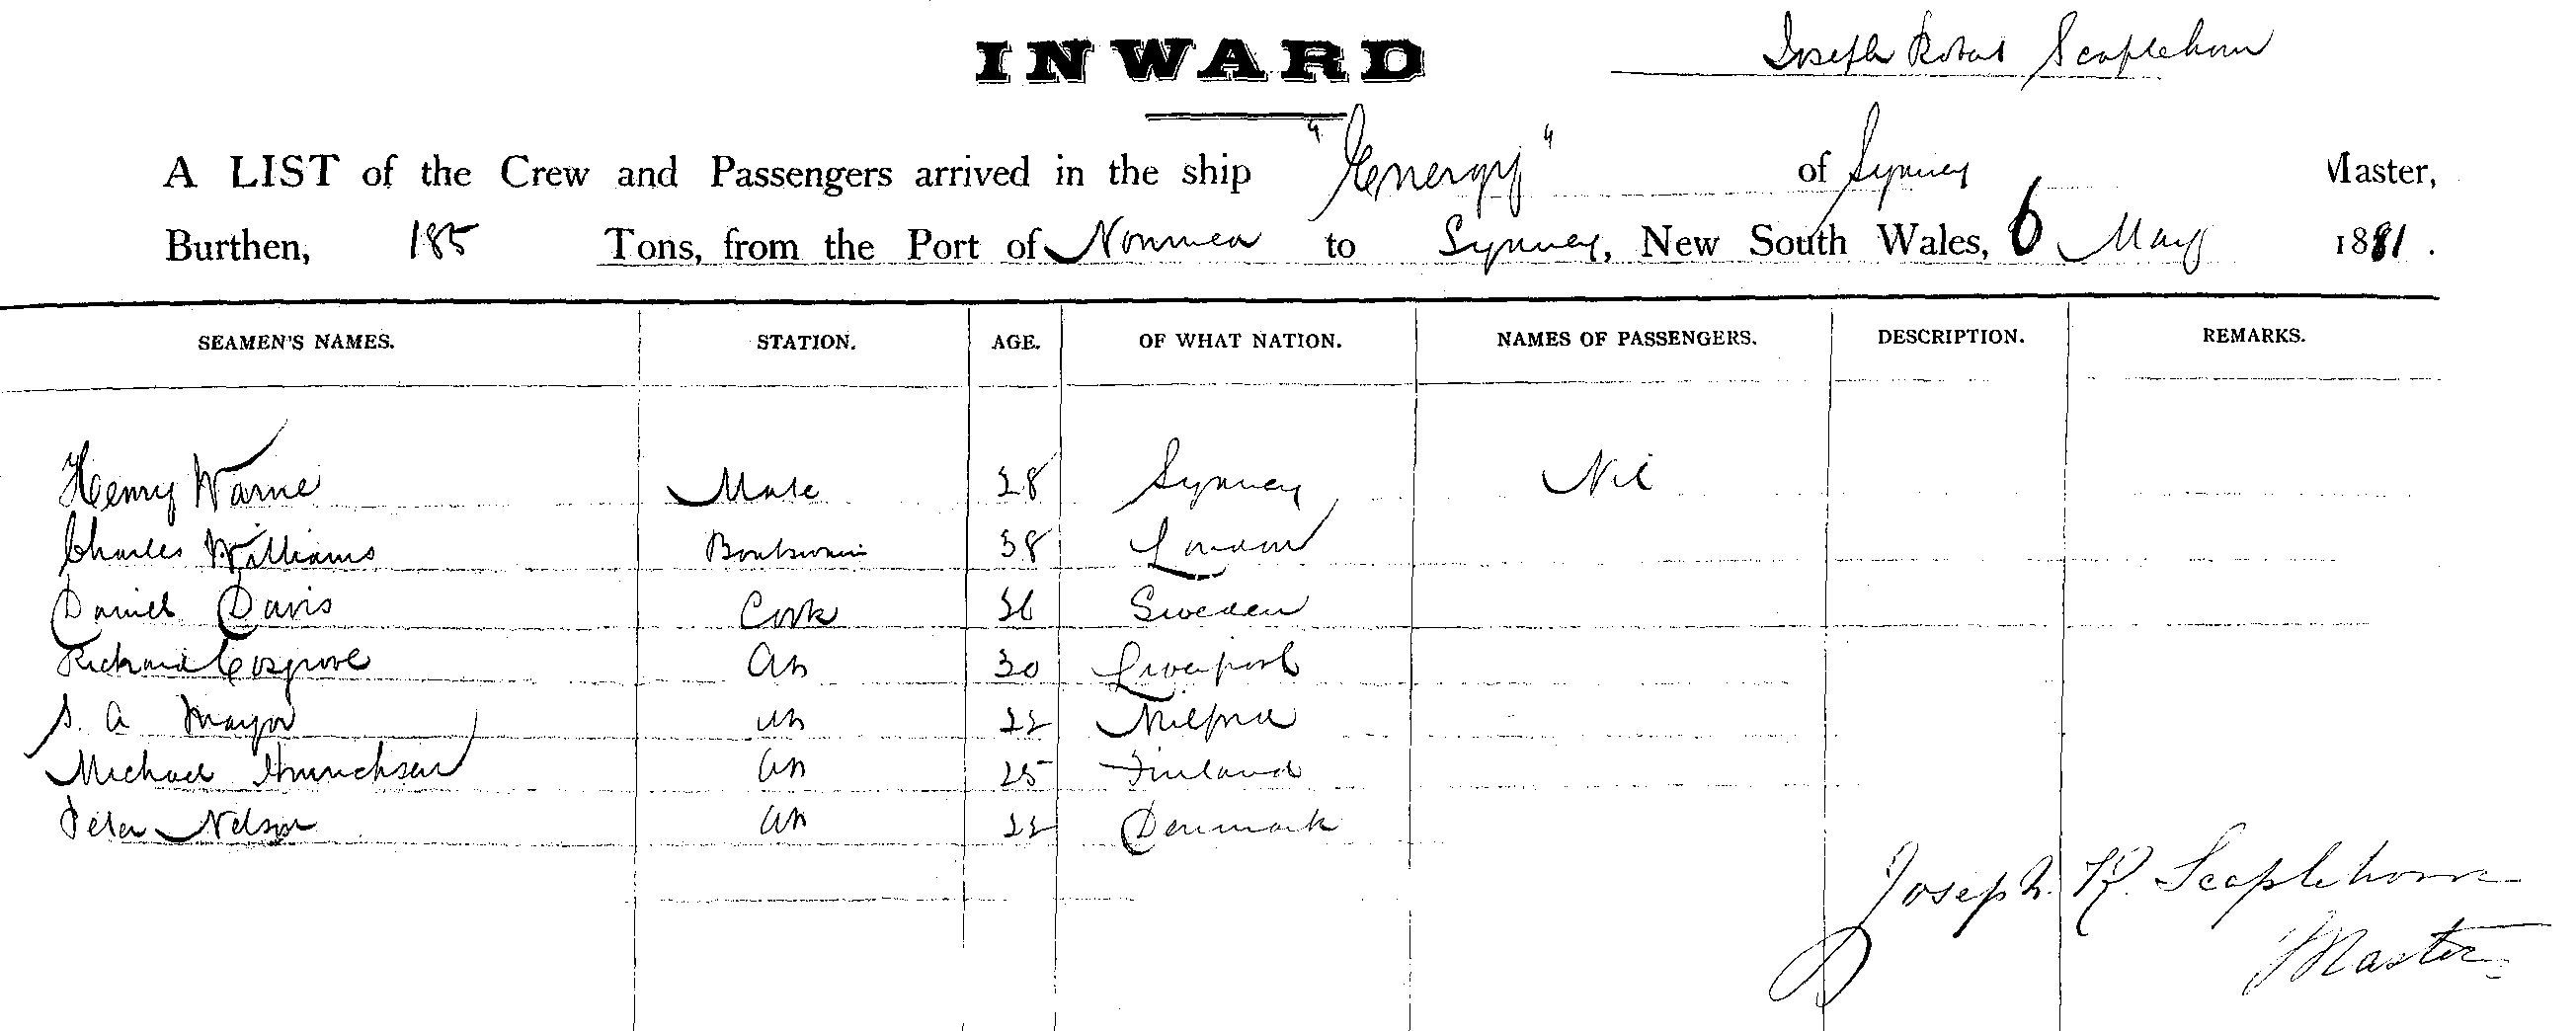 INWARD
Joseph Robert Scaplehorn
A LIST of the Crew and Passengers arrived in the ship "Energy" of Sydney Master,
Burthen, 185 Tons, from the Port of Noumea to Sydney, New South Wales, 6 May 1881.
SEAMEN'S NAMES. STATION. AGE. OF WHAT NATION. NAMES OF PASSENGERS. DESCRIPTION. REMARKS.
Henry Warne Mate 28 Sydney Nil
Charles Williams Boatswain 38 London
Daniel Davis Cook 36 Sweden
Richard Cosgrove AB 30 Liverpool
S. A Mayor AB 22 Milford
Michael AB 25 Finland
Peter Nelson AB 22 Denmark
Joseph. R. Scaplehorn
Master